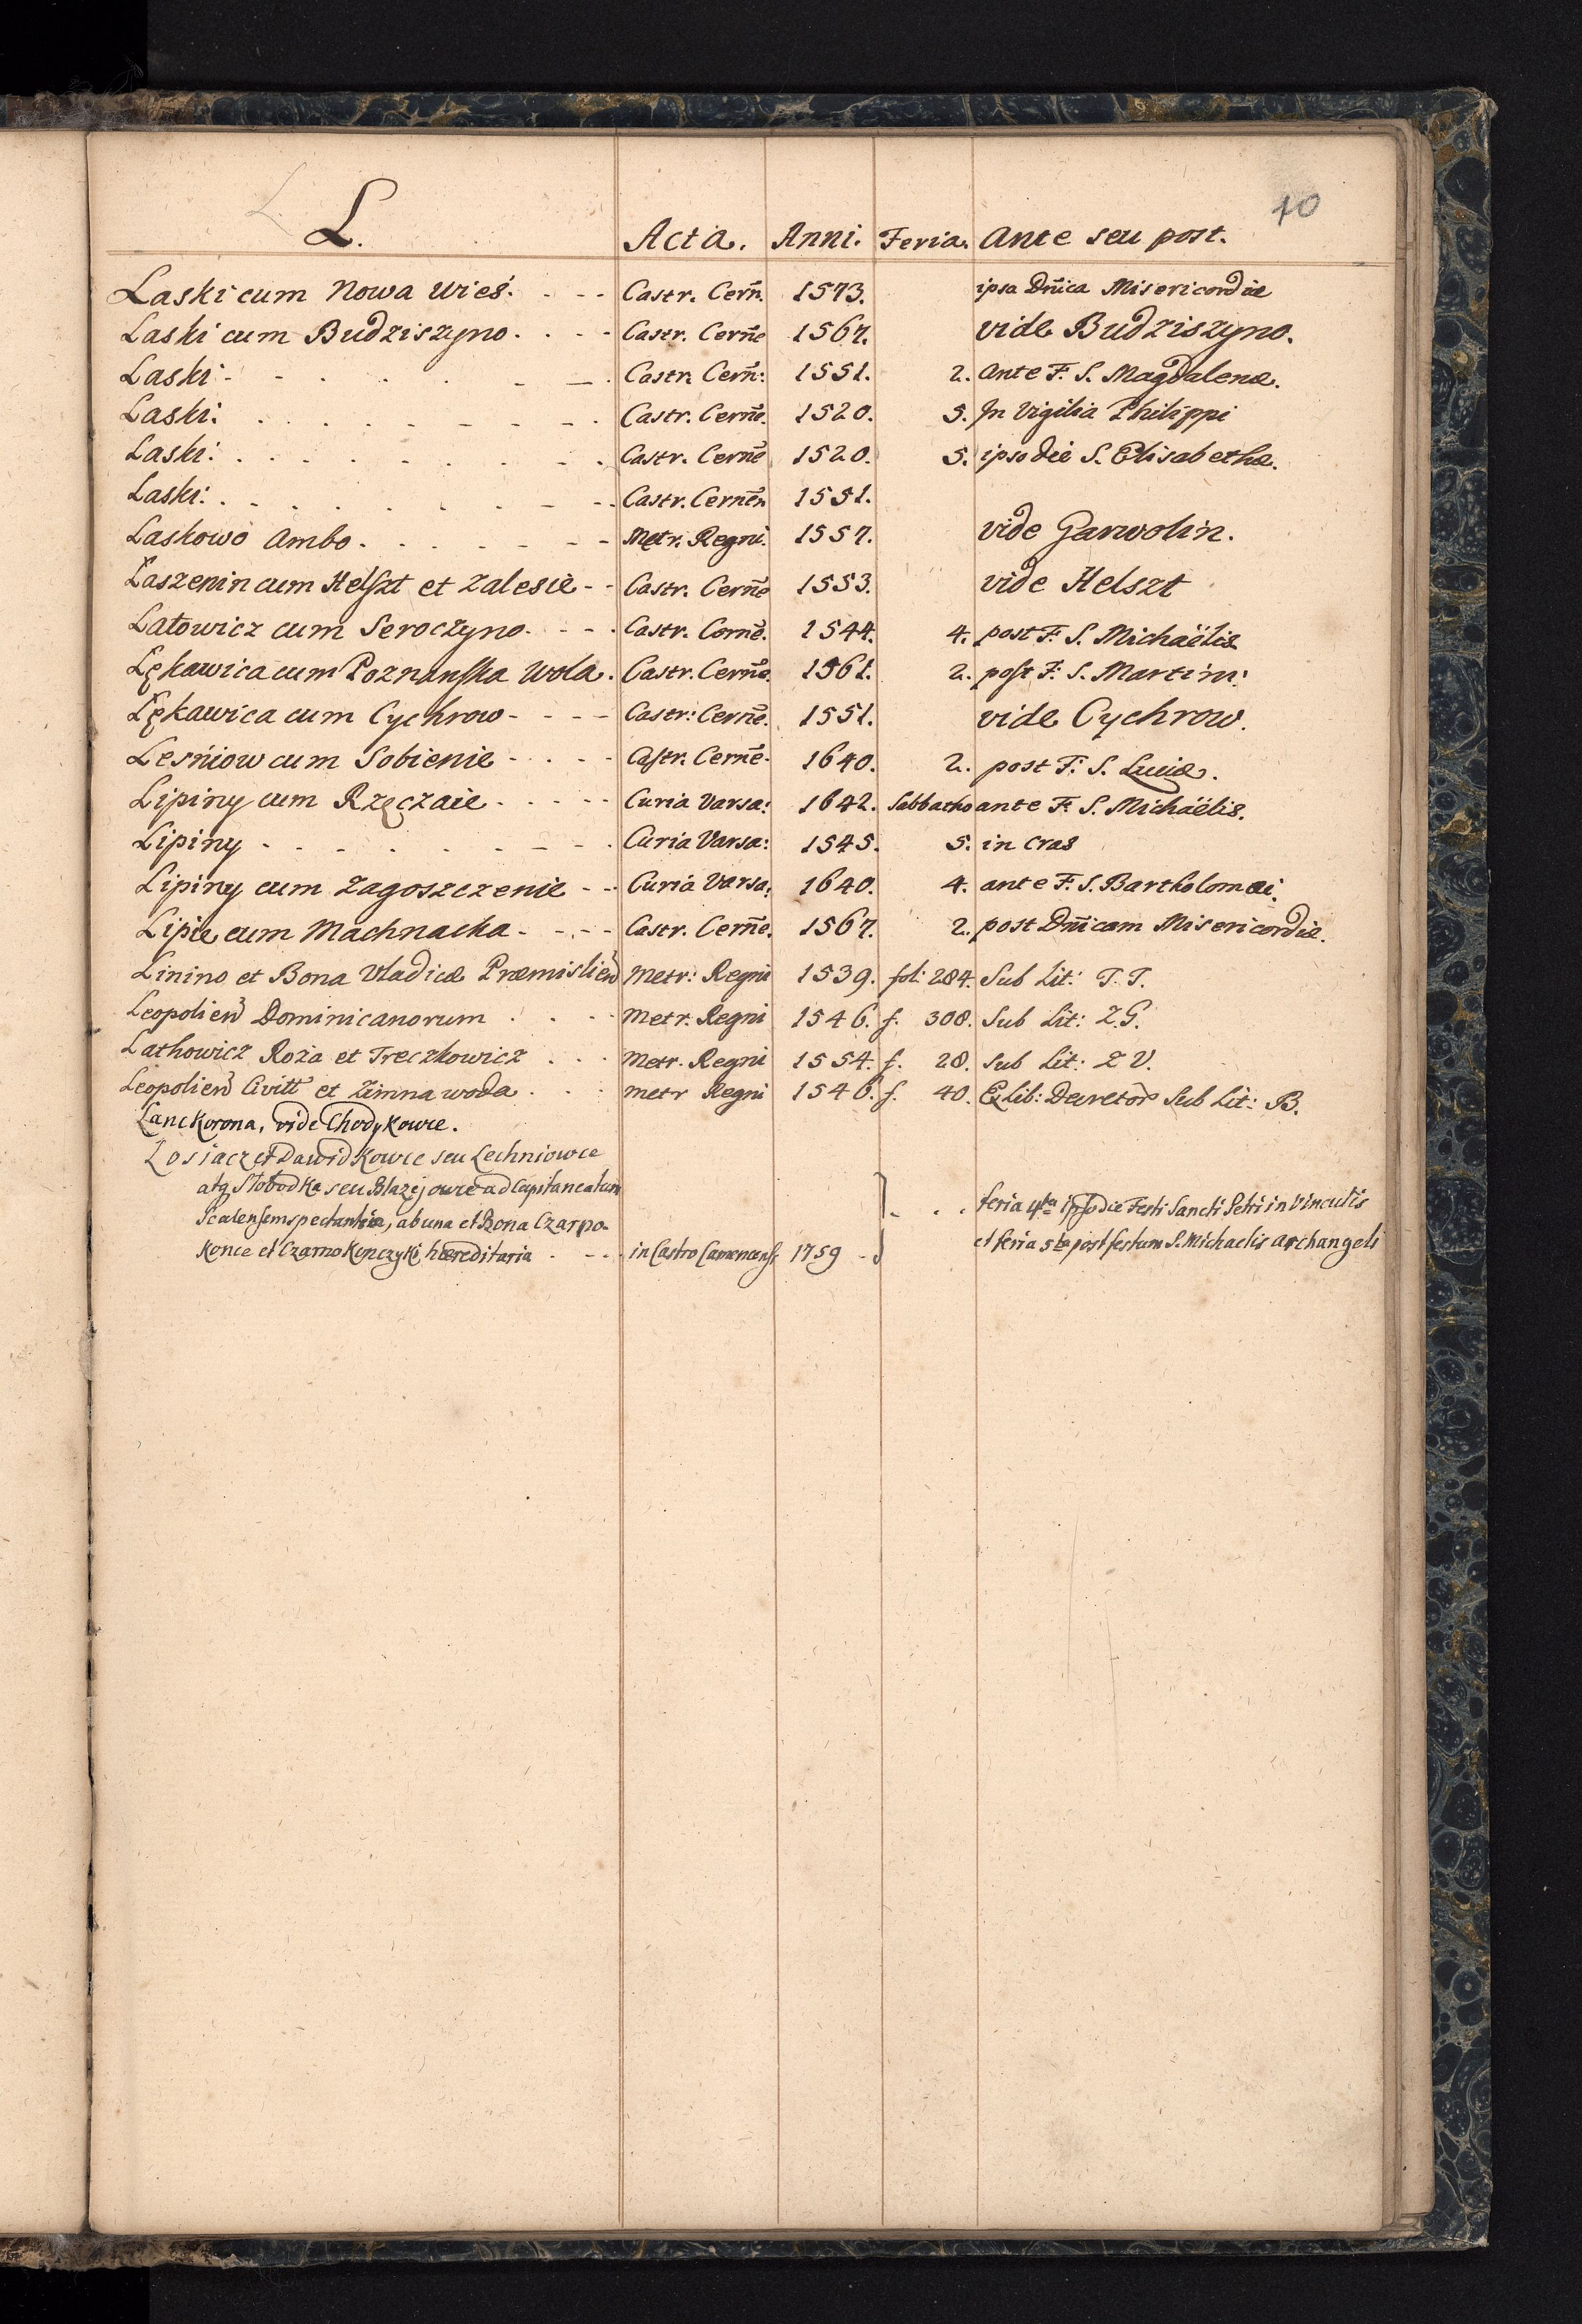 40
L.
Acta. Anni. Feria. Ante seu post.
Laski cum Nowa Wieś. - - - Castr. Cern̄. 1573. ipsa Dn̄ica Misericordiæ
Laski cum Budziszyno. - - - Castr. Cern̄e 1567. vide Budziszyno.
Laski - - - - Castr. Cern̄: 1551. 2. Ante F. S. Magdalenæ.
Laski. - - - - Castr. Cern̄e. 1520. 5. In Vigilia Philippi
Laski. - - - - Castr. Cern̄e 1520. 5. ipso die S. Elisabethæ.
Laski. - - - - Castr. Cernēn 1551.
Laskowo Ambo. - - - - Metr. Regni. 1557. vide Garwolin.
Laszenin cum Helszt et Zalesie - - Castr. Cern̄e 1553. vide Helszt
Latowicz cum Seroczyno. - - - Castr. Cernē. 1544. 4. post F. S. Michaëlis
Lękawica cum Poznanska Wola. Castr. Cern̄e. 1561. 2. post F. S. Martini.
Lękawica cum Cychrow - - - - Castr: Cern̄e. 1551. vide Cychrow.
Leśniow cum Sobienie - - - - Castr. Cernē. 1640. 2. post F. S. Luciæ.
Lipiny cum Rzęczaie - - - - Curia Varsa: 1642. Sabbatho ante F. S. Michaëlis.
Lipiny - - - - Curia Varsa: 1545. 5. in cras
Lipiny cum Zagoszczenie - - Curia Varsa: 1640. 4. ante F. S. Bartholomæi.
Lipie cum Machnacka - - - - Castr. Cern̄e. 1567. 2. post Dn̄icam Misericordiæ.
Linino et Bona Vladicæ Præmislien̄ Metr: Regni 1539. fol: 284. Sub Lit: T. T.
Leopolien̄ Dominicanorum . . . Metr. Regni 1546. f. 308. Sub Lit: Z.G.
Lathowicz Roża et Treczkowicz . . . Metr. Regni 1554. f. 28. Sub Lit: Z V.
Leopolien̄ Civitt et Zimna woda . . . Metr Regni 1546. f. 40. E Lib: Decretor Sub Lit: B.
Lanckorona, vide Chodykowce.
Losiacz et Dawidkowce seu Lechniowce
atq Slobodka seu Blazejowce ad Capitaneatum
Scalensem spectantia, ab una et Bona Czarno- feria 4ta ipso die Festi Sancti Petri in Vinculis
konce et Czarnokonczyki hæreditaria . - - - in Castro Camenecensi 1759 - et feria 5ta post festum S. Michaelis Archangeli